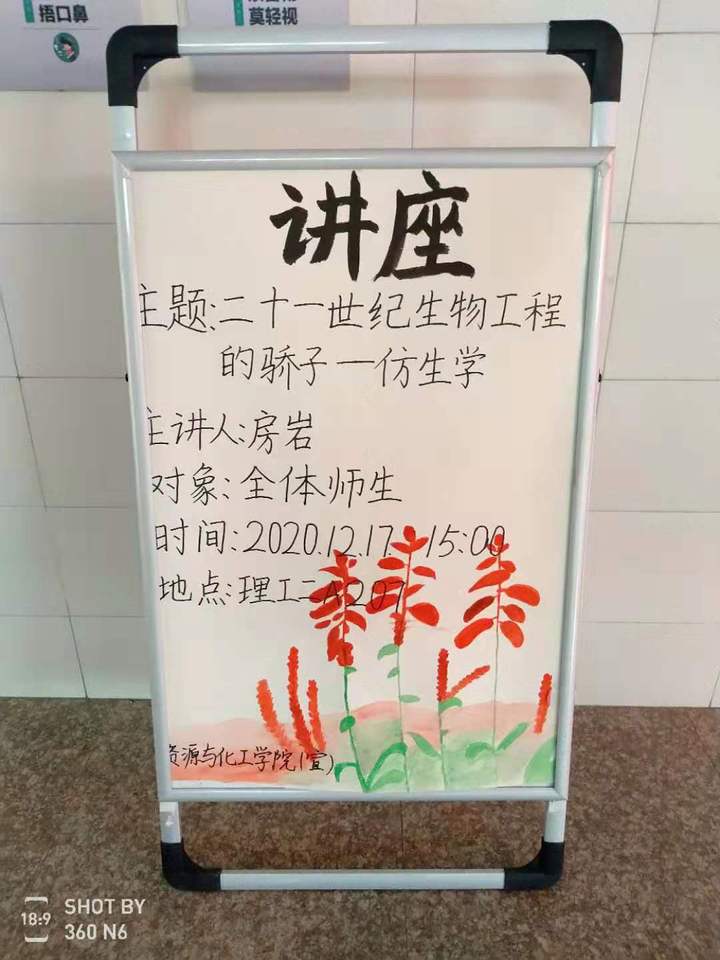 捂口鼻
莫轻视
讲座
主题:二十一世纪生物工程
的骄子一仿生学
主讲人:房岩
对象:全体师生
时间:2020.12.17 15:00
地点:理工二A207
资源与化工学院(宣)
18:9
SHOT BY
360 N6